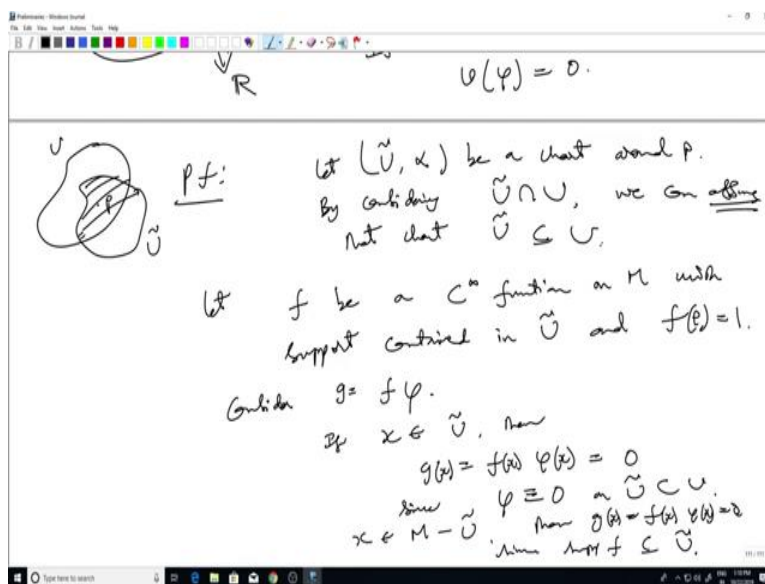 Preliminaries - Windows Journal
File Edit View Insert Actions Tools Help
R
v(φ) = 0.
U
P
Ũ
Pf:
Let (Ũ, α) be a chart around p.
By considering Ũ ∩ U, we can assume
that chart Ũ ⊆ U.
Let f be a C^∞ function on M with
support contained in Ũ and f(p) = 1.
Consider g = fφ.
If x ∈ Ũ, then
g(x) = f(x) φ(x) = 0
since φ ≡ 0 on Ũ ⊂ U.
x ∈ M - Ũ then g(x) = f(x) φ(x) = 0
since supp f ⊆ Ũ.
Type here to search
ENG